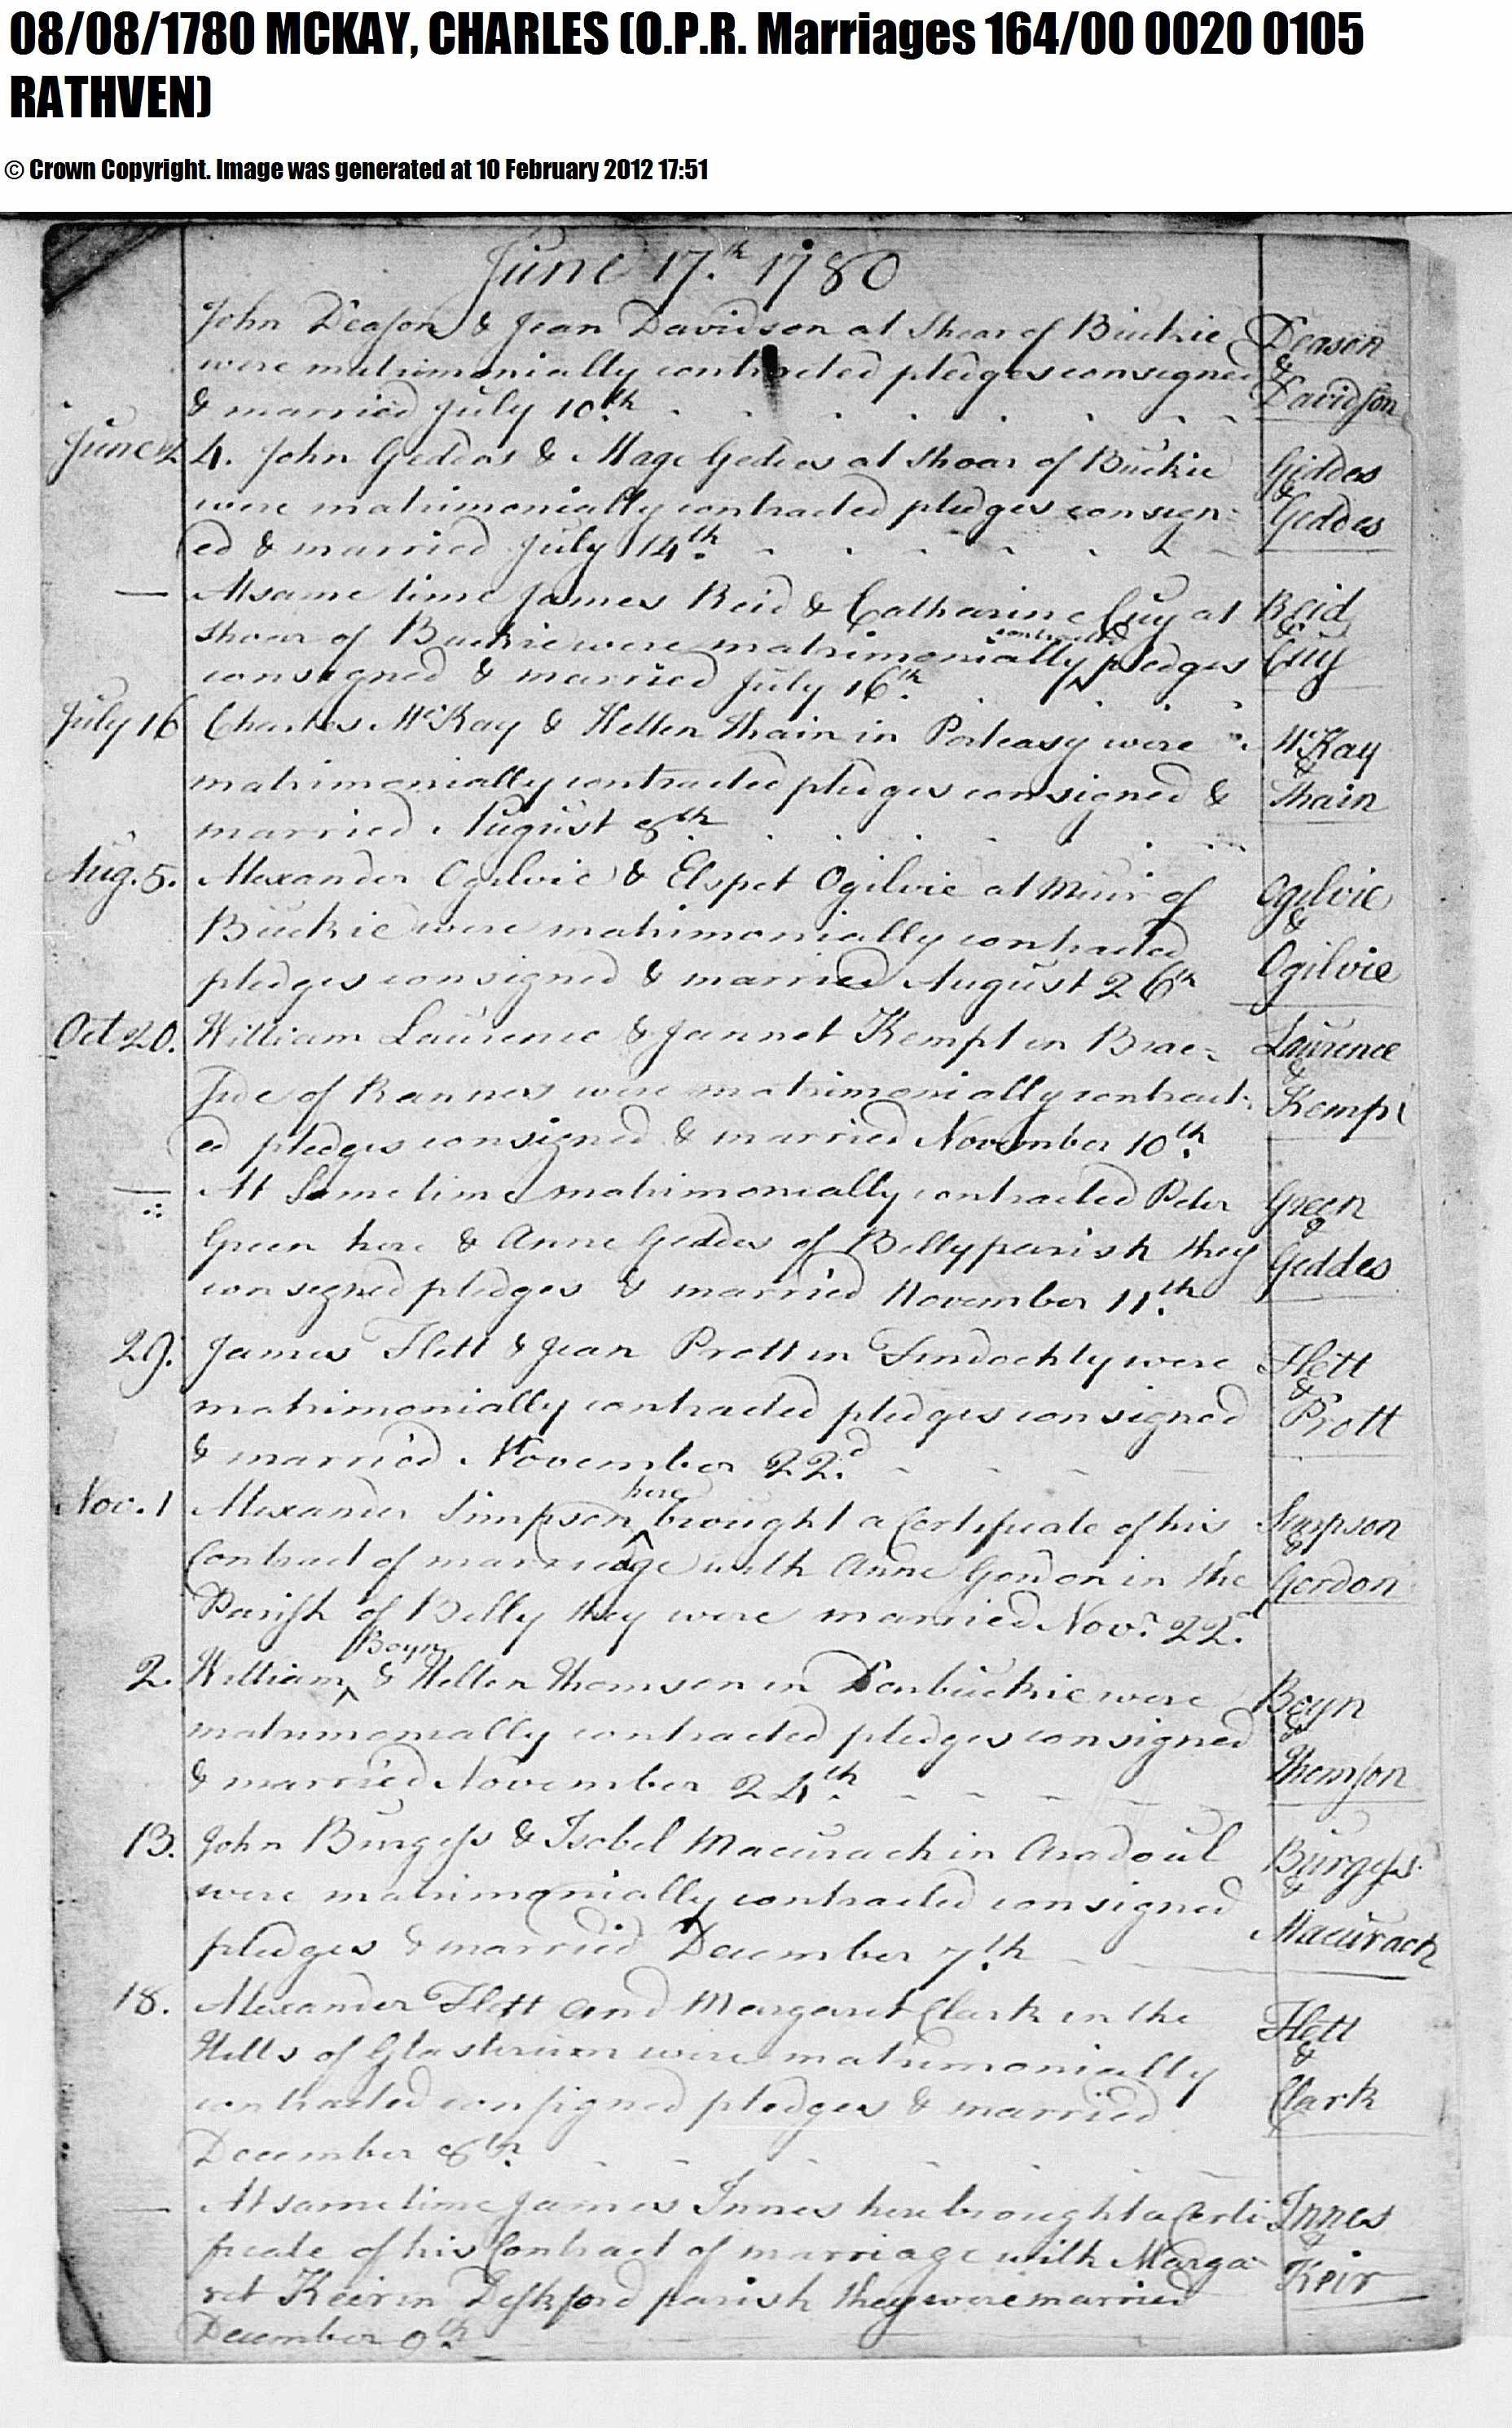 08/08/1780 MCKAY, CHARLES (O.P.R. Marriages 164/00 0020 0105
RATHVEN)
© Crown Copyright. Image was generated at 10 February 2012 17:51
June 17.th 1780
John Deason & Jean Davidson at Shoar of Buckie Deason
were matrimonially contracted pledges consigned &
& married July 10.th Davidson
June 24. John Geddes & Mage Geddes at Shoar of Buckie Geddes
were matrimonially contracted pledges consign- &
ed & married July 14th. Geddes
— At same time James Reid & Catharine Cuy at Reid
contracted
Shoar of Buckie were matrimonially ^ pledges & Cuy
consigned & married July 16th.
July 16 Charles McKay & Hellen Thain in Porteasy were McKay
matrimonially contracted pledges consigned & &
married August 8th. Thain
Aug. 5. Alexander Ogilvie & Elspet Ogilvie at Muir of Ogilvie
Buckie were matrimonially contracted &
pledges consigned & married August 26th Ogilvie
Oct 20. William Laurence & Jannet Kempt in Brae- Laurence
side of Rannes were matrimonially contract- &
ed pledges consigned & married November 10th. Kempt
— At same time matrimonially contracted Peter Green
Green here & Anne Geddes of Belly parish they &
consigned pledges & married November 11th. Geddes
29. James Flett & Jean Prott in Findochty were Flett
matrimonially contracted pledges consigned &
& married November 22.d Prott
here
Nov. 1 Alexander Simpson ^ brought a Certificate of his Simpson
Contract of marriage with Anne Gordon in the &
Parish of Belly they were married Nov.r 22.d Gordon
Boyn
2. William ^ & Hellen Thomson in Danbuckie were Boyn
matrimonially contracted pledges consigned &
& married November 24th. Thomson
13. John Burgess & Isobel Macurach in Aradoul Burgess
were matrimonially contracted consigned &
pledges & married December 7.th Macurach
18. Alexander Flett and Margaret Clark in the Flett
Hills of Glasterium were matrimonially &
contracted consigned pledges & married Clark
December 8th.
— At same time James Innes here brought a Certi- Innes
ficate of his Contract of marriage with Marga- &
ret Keir in Deskford parish they were married Keir
December 9th.